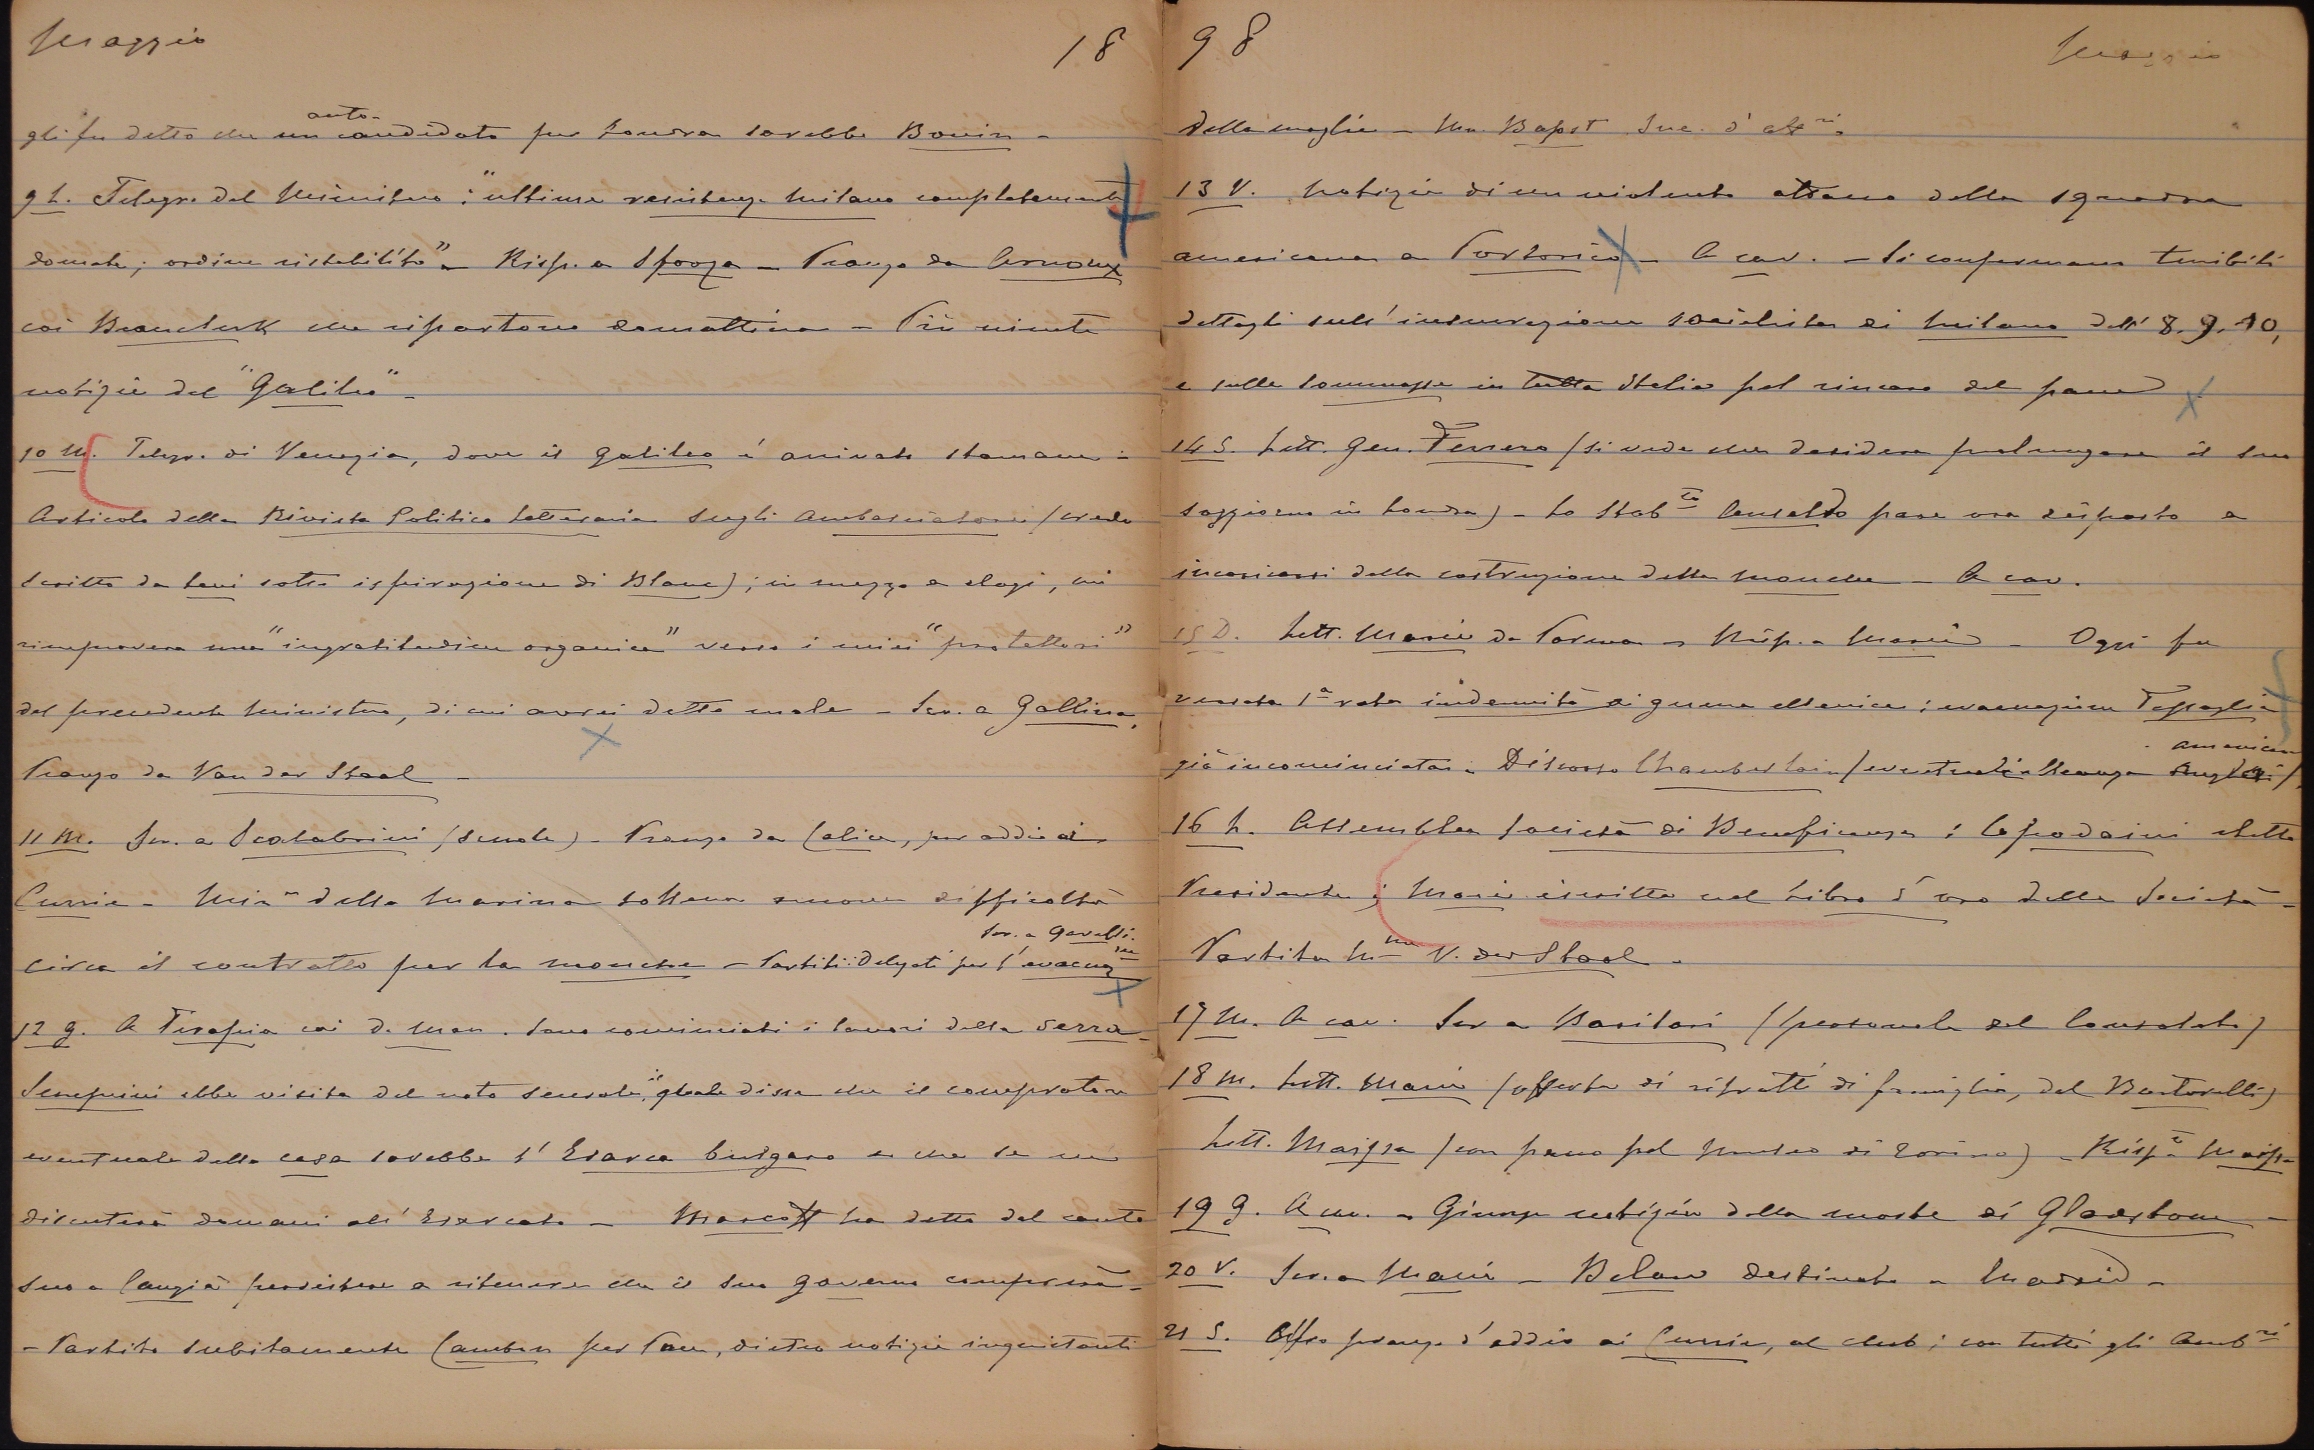 Maggio 18
gli fu detto che un auto-candidato per Londra sarebbe Bonin -
9 L. Telegr. del Ministero: "ultime resistenze Milano completamente
domate; ordine ristabilito" - Risp. a Sforza - Pranzo da Arnoux
coi Beauclerk che ripartono domattina - Più niente
notizie del "Galileo" -
10 M. Telegr. di Venezia, dove il Galileo è arrivato stamane -
Articolo della Rivista Politica Letteraria sugli Ambasciatori (credo
scritto da Levi sotto ispirazione di Blanc); in mezzo a elogi, mi
rimprovera una "ingratitudine organica" verso i miei "protettori"
del precedente Ministero, di cui avrei detto male - Scr. a Gallina,
Pranzo da Van der Staal -
11 M. Scr. a Scalabrini (scuole) - Pranzo da Calice, per addio ai
Currie - Min.º della Marina solleva nuove difficoltà
circa il contratto per la mouche - Partiti: Delegati per l'evacuaz.ne
Scr. a Gavelli.
12 G. A Terapia coi d. Man. Sono cominciati i lavori della serra -
Semprini ebbe visita del noto sensale, il quale disse che il compratore
eventuale della casa sarebbe l'Esarca bulgaro e che se ne
discuterà domani all'Esarcato - Marcoff ha detto dal canto
suo a Cangià persistere a ritenere che il suo governo comprerà -
- Partito subitamente Cambon per Pau, dietro notizie inquietanti
98 Maggio
della moglie - Mr Bapst Inc. d'aff.ri -
13 V. Notizie di un violento attacco della squadra
americana a Portorico - A cav. - Si confermano terribili
dettagli sull'insurrezione socialista di Milano dell' 8. 9. 10,
e sulle sommosse in tutta Italia pel rincaro del pane
14 S. Lett. Gen. Ferrero (si vede che desidera prolungare il suo
soggiorno in Londra) - Lo Stab.to Ansaldo pare ora disposto a
incaricarsi della costruzione della mouche - A cav.
15 D. Lett. Marie da Parma - Risp. a Marie - Oggi fu
versata 1ª rata indennità di guerra ellenica; evacuazione Tessaglia
già incominciata - Discorso Chamberlain (eventuale alleanza Anglo americana).
16 L. Assemblea Società di Beneficenza: Capodaini eletto
Presidente; Marie iscritta nel Libro d'oro della Società -
Partita M.me V. der Staal -
17 M. A cav. Scr a Barilari (personale del Consolato)
18 M. Lett. Marie (offerta di ritratti di famiglia, del Bertorelli)
Lett. Maissa (con panno pel Museo di Torino) - Risp. a Maissa
19 G. A cav. - Giunge notizia della morte di Gladstone -
20 V. Scr. a Marie - Below destinato a Madrid -
21 S. Offro pranzo d'addio ai Currie, al club; con tutti gli Amb.ri